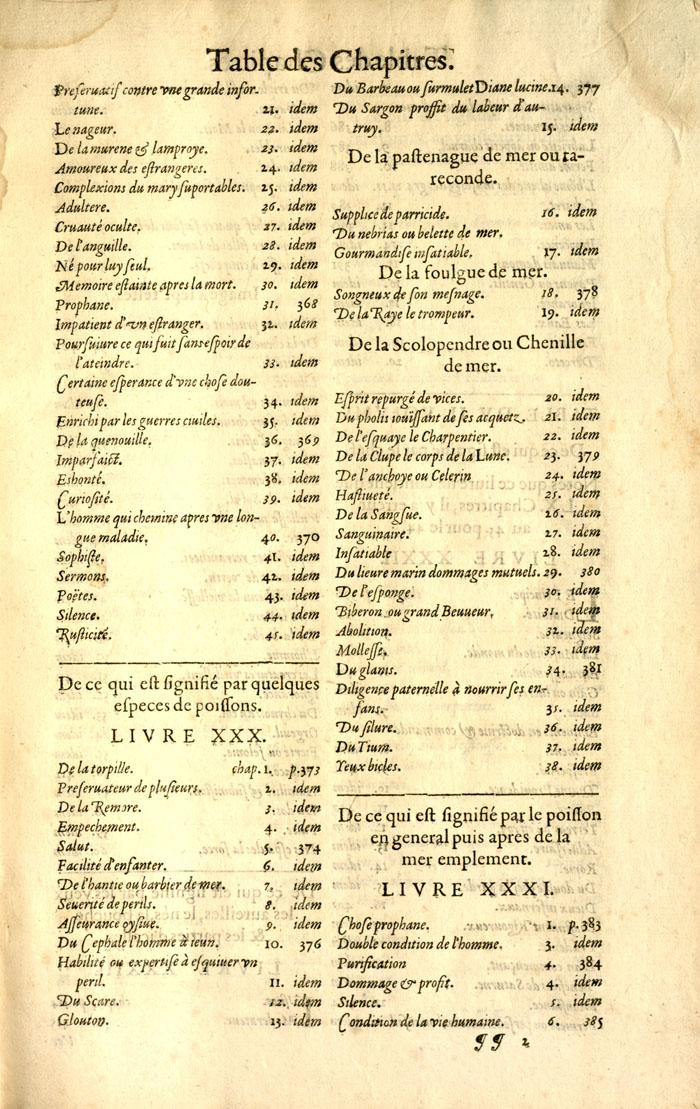 Table des Chapitres.
Preseruatif contre vne grande infor-
tune. 21. idem
Le nageur. 22. idem
De la murene & lamproye. 23. idem
Amoureux des estrangeres. 24. idem
Complexions du mary suportables. 25. idem
Adultere. 26. idem
Cruauté oculte. 27. idem
De l'anguille. 28. idem
Né pour luy seul. 29. idem
Memoire estainte apres la mort. 30. idem
Prophane. 31. 368
Impatient d'vn estranger. 32. idem
Poursuiure ce qui fuit sans espoir de
l'ateindre. 33. idem
Certaine esperance d'vne chose dou-
teuse. 34. idem
Enrichi par les guerres ciuiles. 35. idem
De la quenouille. 36. 369
Imparfaict. 37. idem
Eshonté. 38. idem
Curiosité. 39. idem
L'homme qui chemine apres vne lon-
gue maladie. 40. 370
Sophiste. 41. idem
Sermons. 42. idem
Poëtes. 43. idem
Silence. 44. idem
Rusticité. 45. idem
De ce qui est signifié par quelques
especes de poissons.
LIVRE XXX.
De la torpille. chap. 1. p.373
Preseruateur de plusieurs. 2. idem
De la Remore. 3. idem
Empechement. 4. idem
Salut. 5. 374
Facilité d'enfanter. 6. idem
De l'hantie ou barbier de mer. 7. idem
Seuerité de perils. 8. idem
Asseurance oysiue. 9. idem
Du Cephale l'homme à ieun. 10. 376
Habilité ou expertise à esquiuer vn
peril. 11. idem
Du Scare. 12. idem
Glouton. 13. idem
Du Barbeau ou surmulet Diane lucine. 14. 377
Du Sargon proffit du labeur d'au-
truy. 15. idem
De la pastenague de mer ou ra-
reconde.
Supplice de parricide. 16. idem
Du nebrias ou belette de mer.
Gourmandise insatiable. 17. idem
De la foulgue de mer.
Songneux de son mesnage. 18. 378
De la Raye le trompeur. 19. idem
De la Scolopendre ou Chenille
de mer.
Esprit repurgé de vices. 20. idem
Du pholis iouïssant de ses acquetz. 21. idem
De l'esquaye le Charpentier. 22. idem
De la Clupe le corps de la Lune. 23. 379
De l'anchoye ou Celerin 24. idem
Hastiueté. 25. idem
De la Sangsue. 26. idem
Sanguinaire. 27. idem
Insatiable 28. idem
Du lieure marin dommages mutuels. 29. 380
De l'esponge. 30. idem
Biberon ou grand Beuueur, 31. idem
Abolition. 32. idem
Mollesse. 33. idem
Du glanis. 34. 381
Diligence paternelle à nourrir ses en-
fans. 35. idem
Du silure. 36. idem
Du Tium. 37. idem
Yeux bicles. 38. idem
De ce qui est signifié par le poisson
en general puis apres de la
mer emplement.
LIVRE XXXI.
Chose prophane. 1. p.383
Double condition de l'homme. 3. idem
Purification 4. 384
Dommage & profit. 4. idem
Silence. 5. idem
Condition de la vie humaine. 6. 385
gg 2